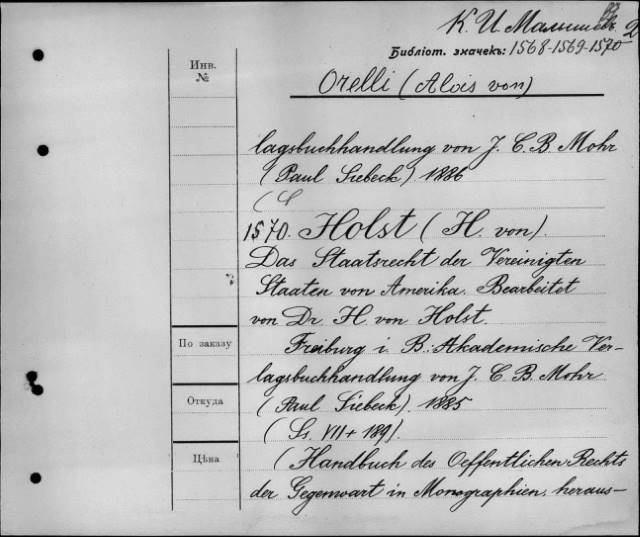 К. И. Малышев. 2
Библіот. значекъ: 1568-1569-1570
Инв.
№
Orelli (Alois von)
lagsbuchhandlung von J. C. B. Mohr
(Paul Siebeck). 1886
(
1570. Holst (H. von).
Das Staatsrecht der Vereinigten
Staaten von Amerika. Bearbeitet
von Dr. H. von Holst.
Freiburg i. B.: Akademische Ver-
По заказу
lagsbuchhandlung von J. C. B. Mohr
Откуда
(Paul Siebeck). 1885
(Ss. VII + 189).
Цѣна
(Handbuch des Oeffentlichen Rechts
der Gegenwart in Monographien, heraus-